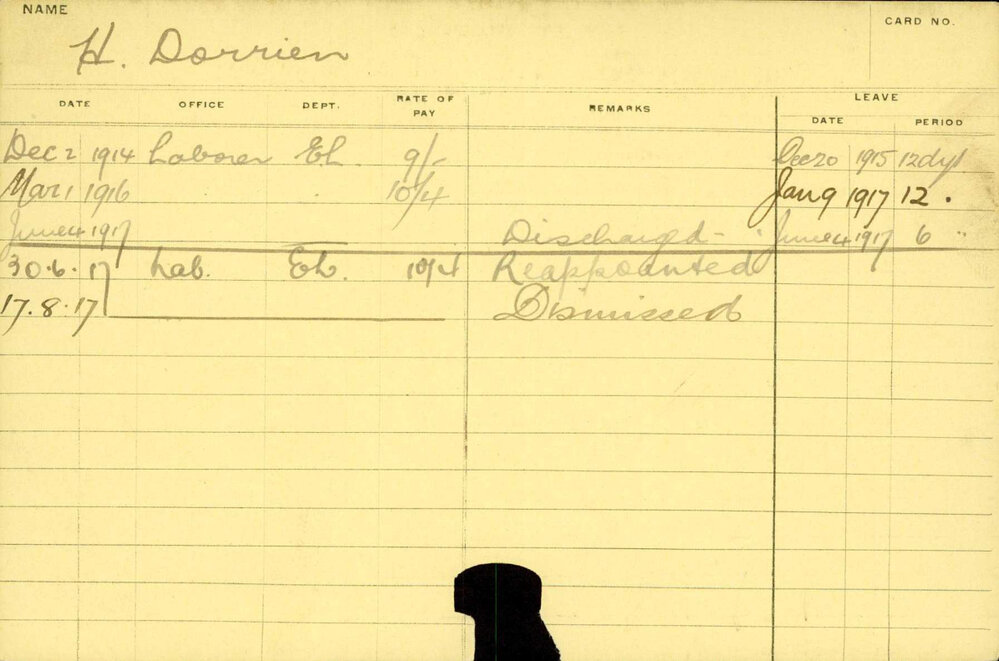 NAME
CARD NO.
H. Dorrien
DATE OFFICE DEPT. RATE OF PAY REMARKS LEAVE
DATE PERIOD
Dec 2 1914 Laborer Eh. 9/- Dec 20 1915 12 dys
Mar 1 1916 10/4 Jan 9 1917 12 "
June 4 1917 Discharged - June 4 1917 6 "
30.6.17 Lab. Eh. 10/4 Reappointed
17.8.17 Dismissed